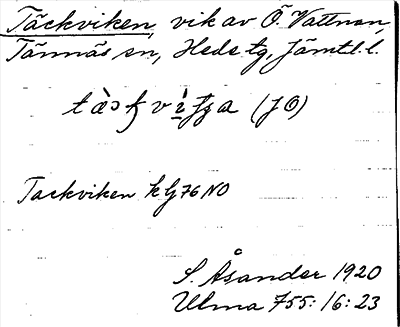 Täckviken, vik av Ö. Vattnan,
Tännäs sn, Hede tg, Jämtl. l.
(JO)
Tackviken kbj 76 NO
S. Åsander 1920
Ulma 755:16:23